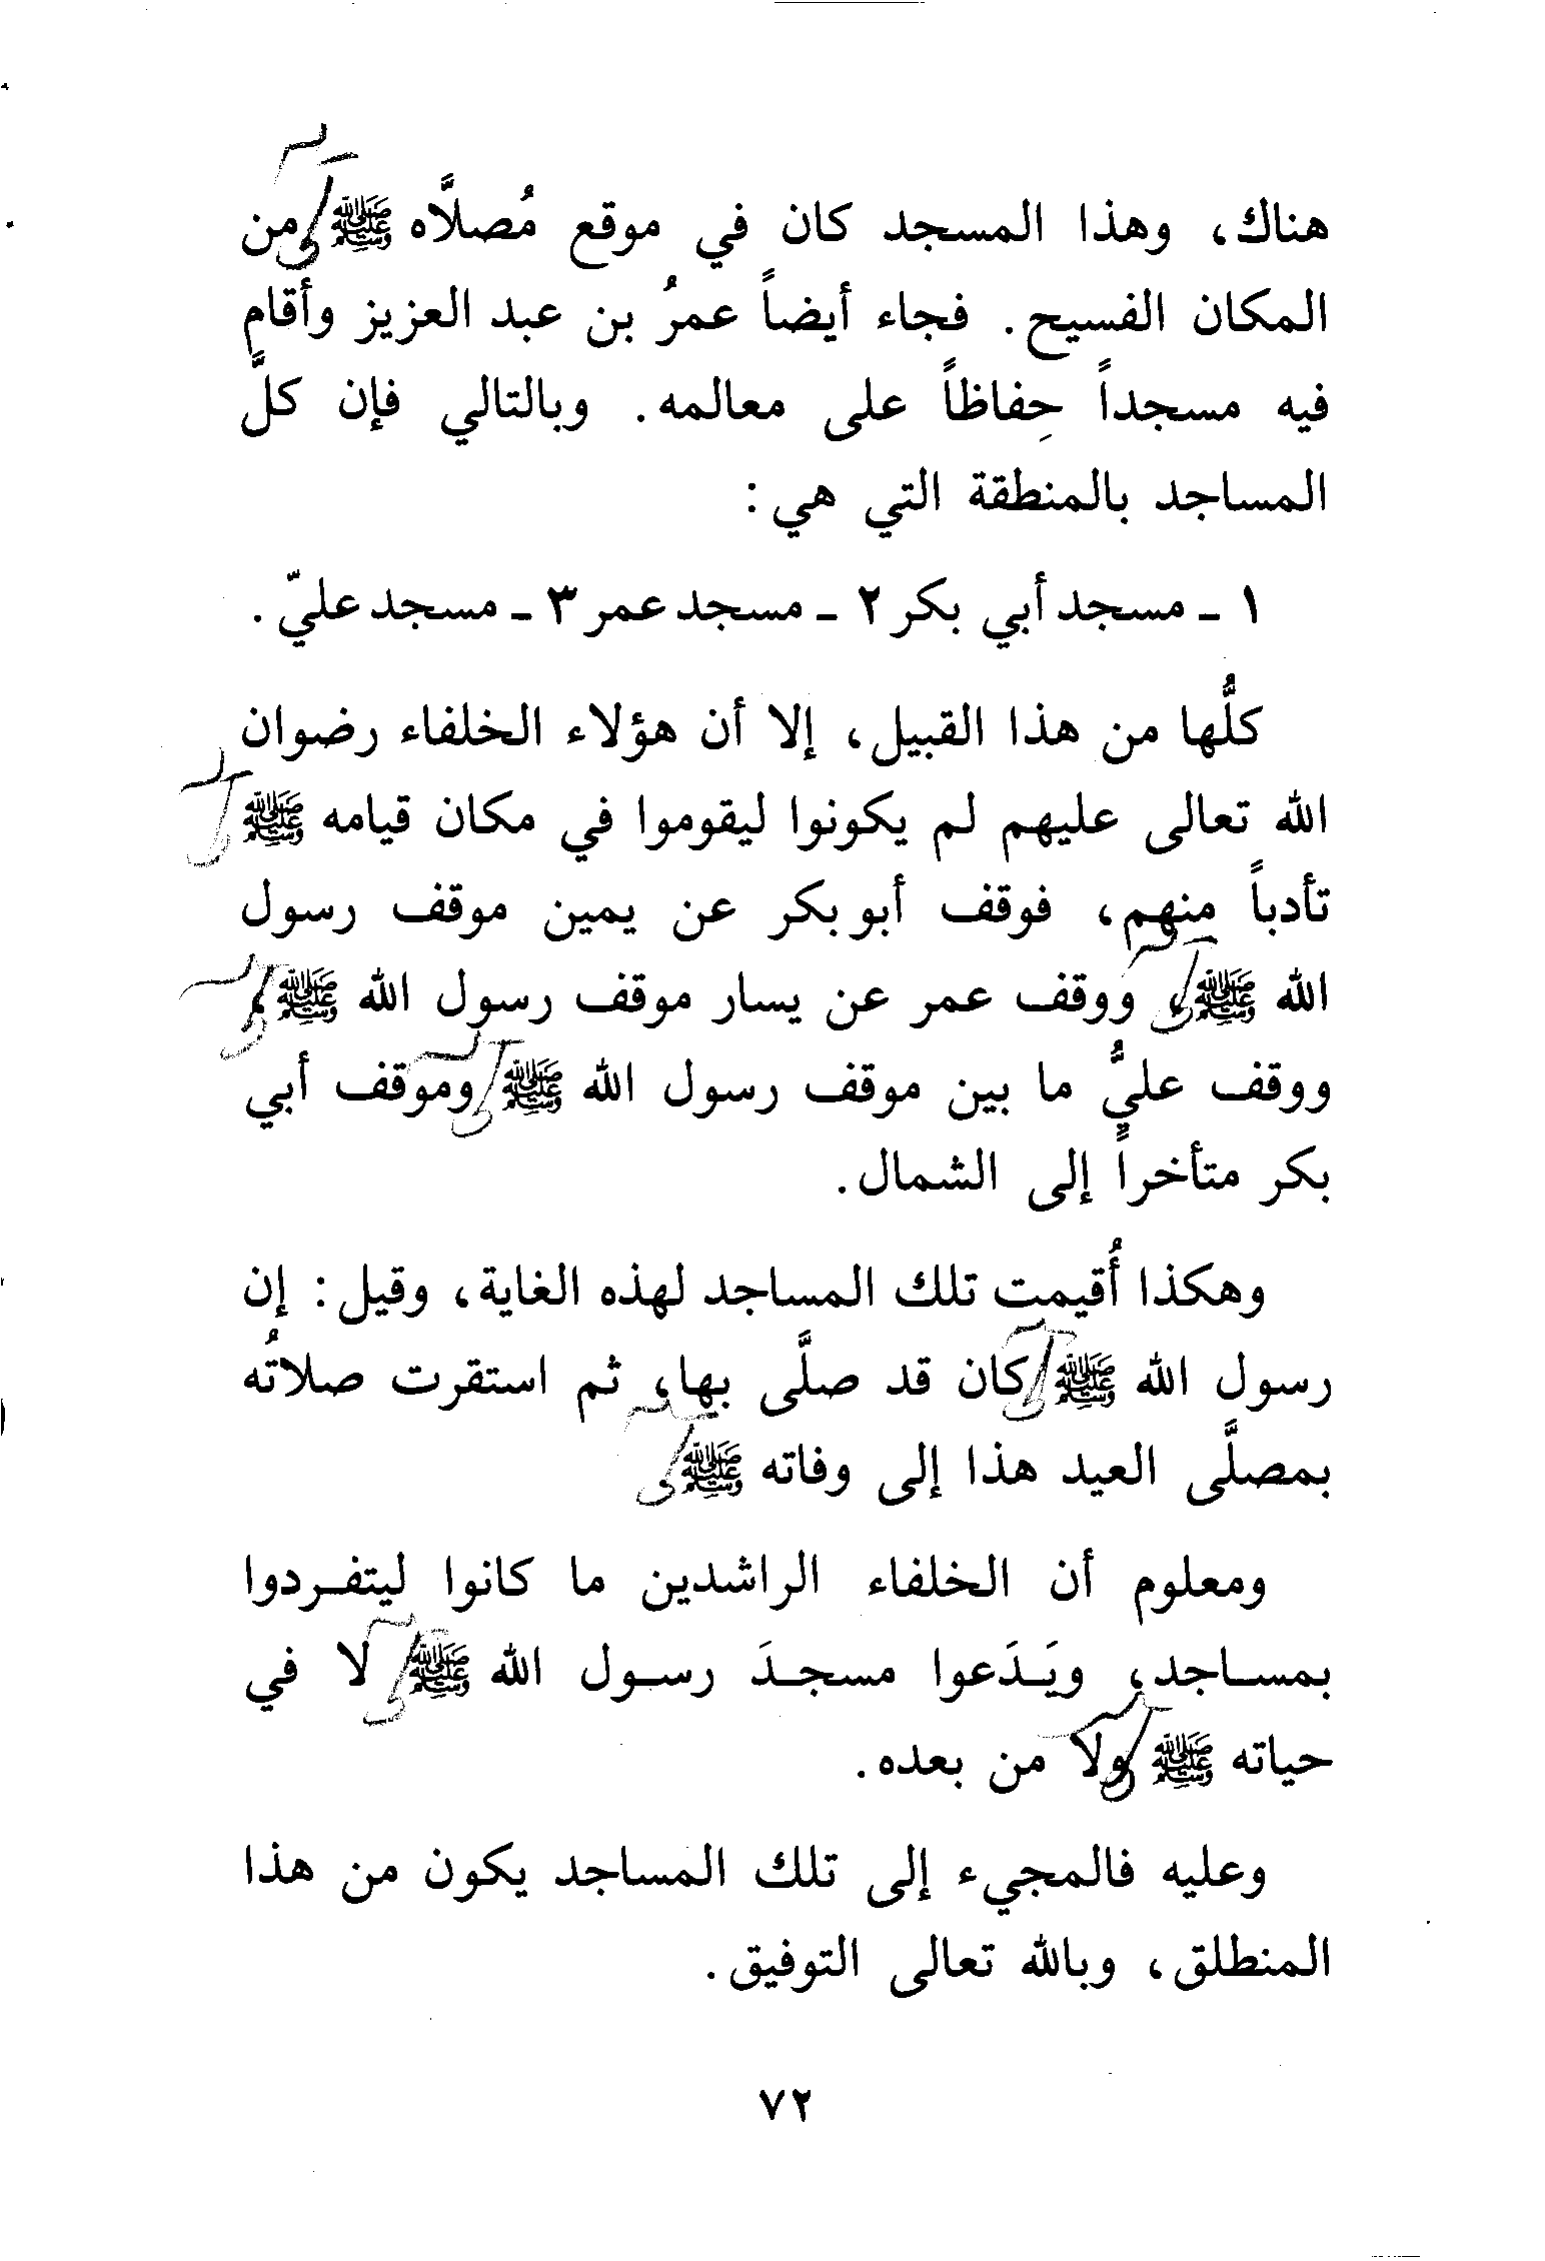 هناك، وهذا المسجد كان في موقع مُصلاَّه ﷺ من
المكان الفسيح. فجاء أيضاً عمرُ بن عبد العزيز وأقام
فيه مسجداً حِفاظاً على معالمه. وبالتالي فإن كلَّ
المساجد بالمنطقة التي هي:
١ ـ مسجد أبي بكر ٢ ـ مسجد عمر ٣ ـ مسجد عليّ.
كلُّها من هذا القبيل، إلا أن هؤلاء الخلفاء رضوان
الله تعالى عليهم لم يكونوا ليقوموا في مكان قيامه ﷺ
تأدباً منهم، فوقف أبو بكر عن يمين موقف رسول
الله ﷺ، ووقف عمر عن يسار موقف رسول الله ﷺ،
ووقف عليٌّ ما بين موقف رسول الله ﷺ وموقف أبي
بكر متأخراً إلى الشمال.
وهكذا أُقيمت تلك المساجد لهذه الغاية، وقيل: إن
رسول الله ﷺ كان قد صلَّى بها، ثم استقرت صلاتُه
بمصلَّى العيد هذا إلى وفاته ﷺ
ومعلوم أن الخلفاء الراشدين ما كانوا ليتفـردوا
بمسـاجد، ويَـدَعوا مسجـدَ رسـول الله ﷺ لا في
حياته ﷺ ولا من بعده.
وعليه فالمجيء إلى تلك المساجد يكون من هذا
المنطلق، وبالله تعالى التوفيق.
٧٢